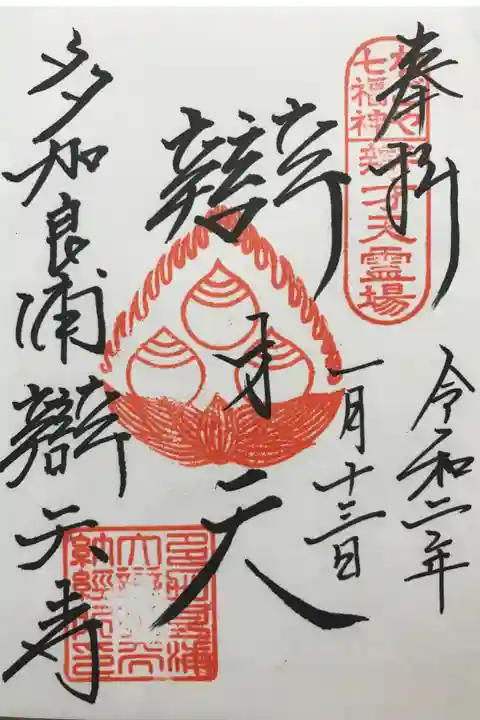 奉拝
七福神
才天霊場
令和二年
一月十三日
辯才天
多加良浦辯天寺